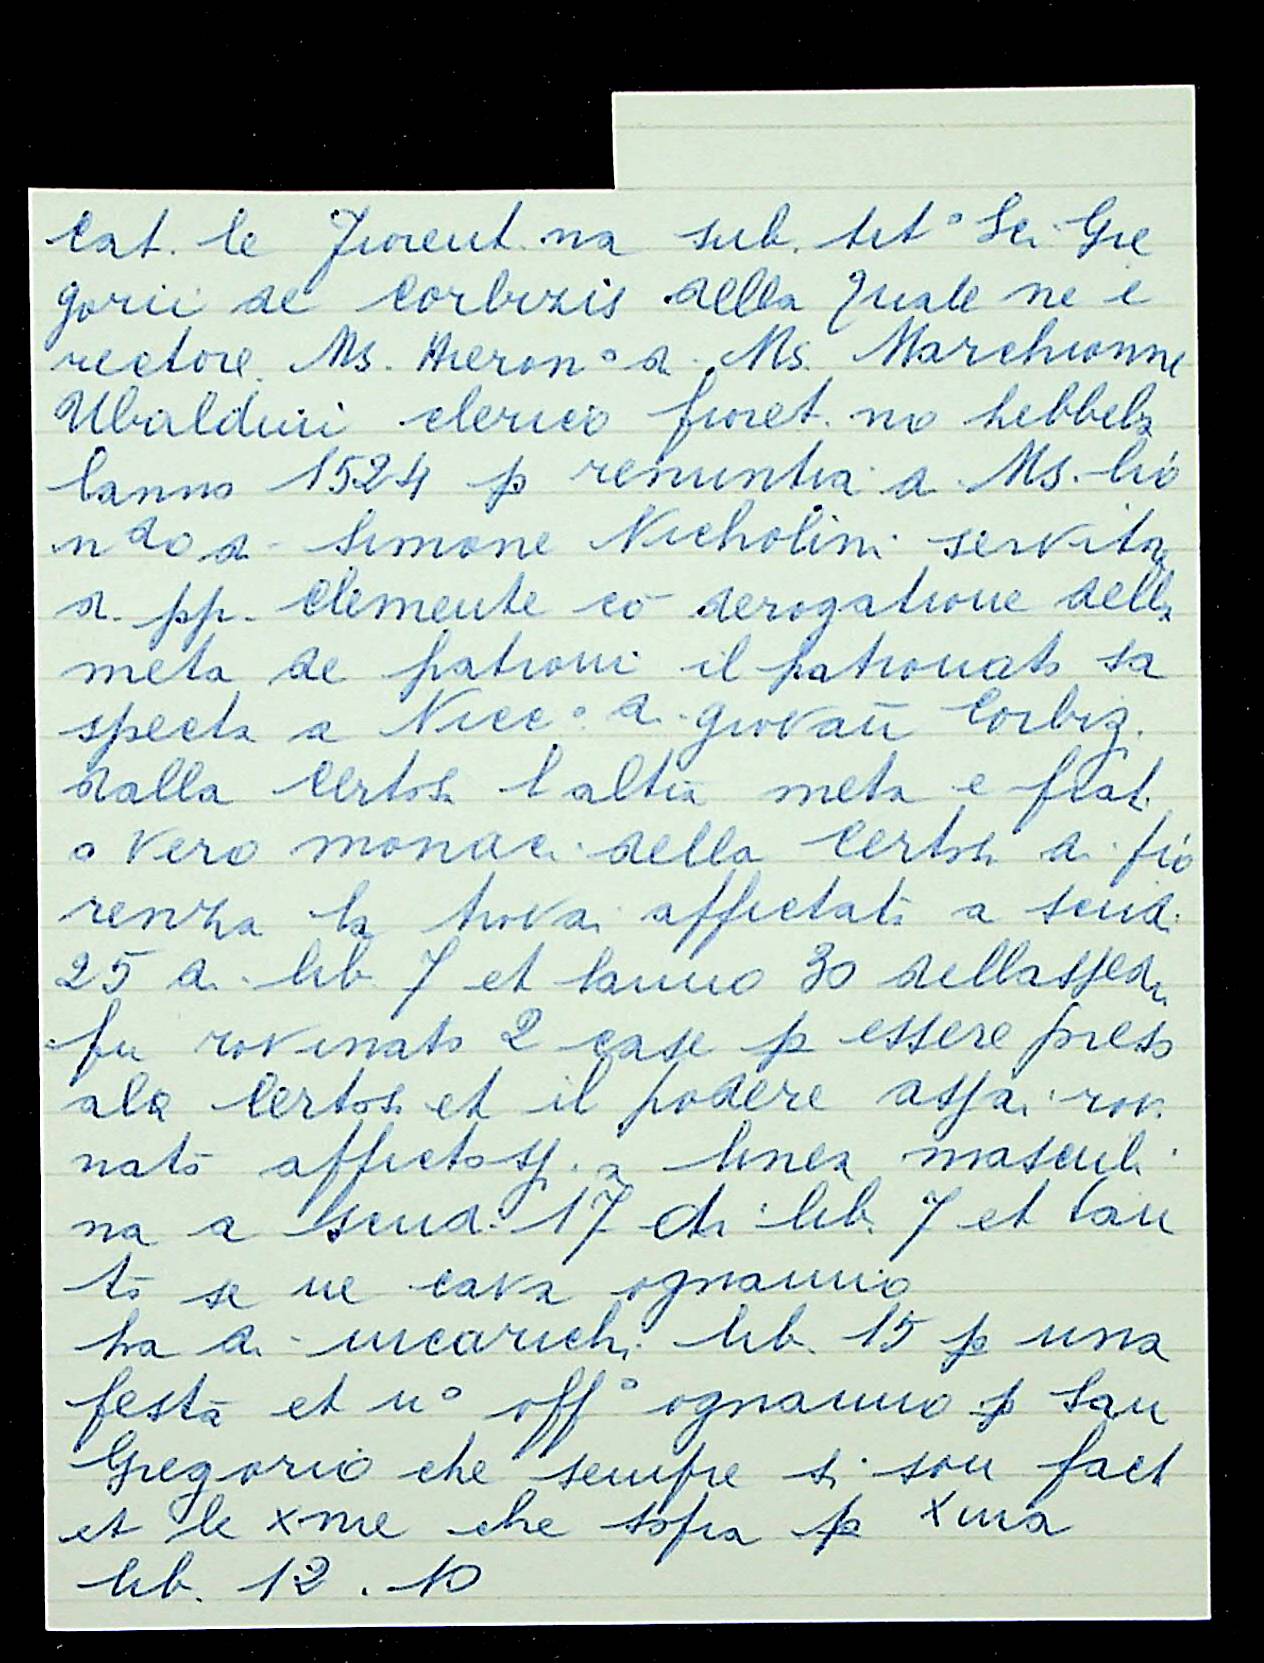 Cat. le Fiorent. na sub. tit° Sci. Gre
gorii de Corbizis della Quale ne e
rectore Ms. Hieron° d. Ms. Marchionne
Ubaldini clerico fioret. no hebbela
lanno 1524 p renuntia a Ms. Lio
n do d. Simone Nicholini servitor
d. pp. Clemente cō derogatione della
meta de patroni il patronato sa
specta a Nicc° d. giovañ Corbiz.
dalla Certosa laltra meta e frat.
o vero monaci della Certosa di fio
renza la trovai affictata a scud.
25 d. lib. 7 et lanno 30 dellassedi
fu rovinato 2 case p essere preso
ala Certosa et il podere assai rovi
nato affictossi a linea masculi
na a scud. 17 di lib. 7 et tan
to se ne cava ognanno
ha d. incarichi lib. 15 p una
festa et n° off° ognanno p San
Gregorio che sempre si son fact
et le xme che sopra p xma
lib. 12 . 10